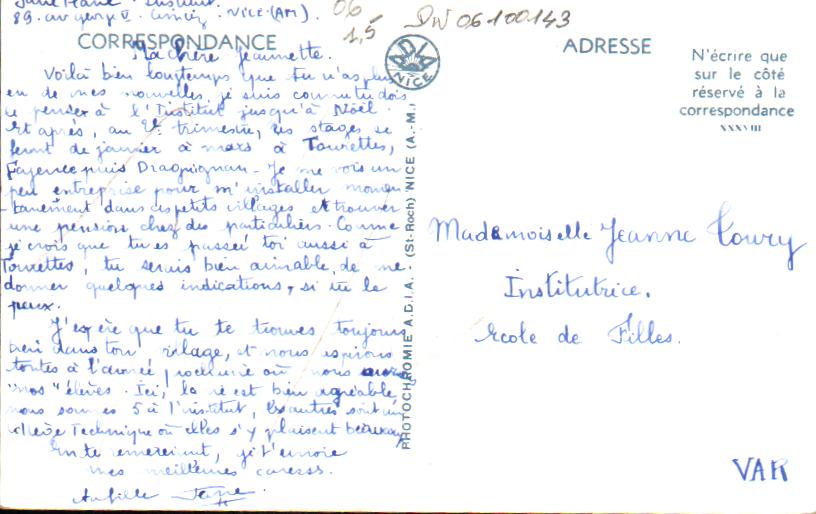 89. av george V. Cimiez. NICE (AM).
06
1,5
06100143
CORRESPONDANCE
Ma Chère Jeannette.
Voilà bien longtemps que tu n'as plus
eu de mes nouvelles, je suis comme tu dois
le penser à l'Institut jusqu'à Noël.
et après, au 2e trimestre, les stages se
feront de janvier à mars à Tourettes,
Fayence puis Draguignan. Je me vois un
peu entreprise pour m'installer momen
tanément dans ces petits villages et trouver
une pension chez des particuliers. Comme
je crois que tu es passée toi aussi à
Tourettes, tu serais bien aimable, de me
donner quelques indications, si tu le
peux.
J'espère que tu te trouves toujours
bien dans ton village, et nous aspirons
toutes à l'année, prochaine où nous aurons
"nos" élèves. Ici, la vie est bien agréable,
nous sommes 5 à l'institut, les autres sont au
collège Technique où elles s'y plaisent beaucoup
En te remerciant, je t'envoie
mes meilleures caresses.
ADIA
NICE
PHOTOCHROMIE A.D.I.A. - (St-Roch) NICE (A.-M.)
ADRESSE
N'écrire que
sur le côté
réservé à la
correspondance
XXXVIII
Mademoiselle Jeanne
Institutrice.
Ecole de Filles.
VAR